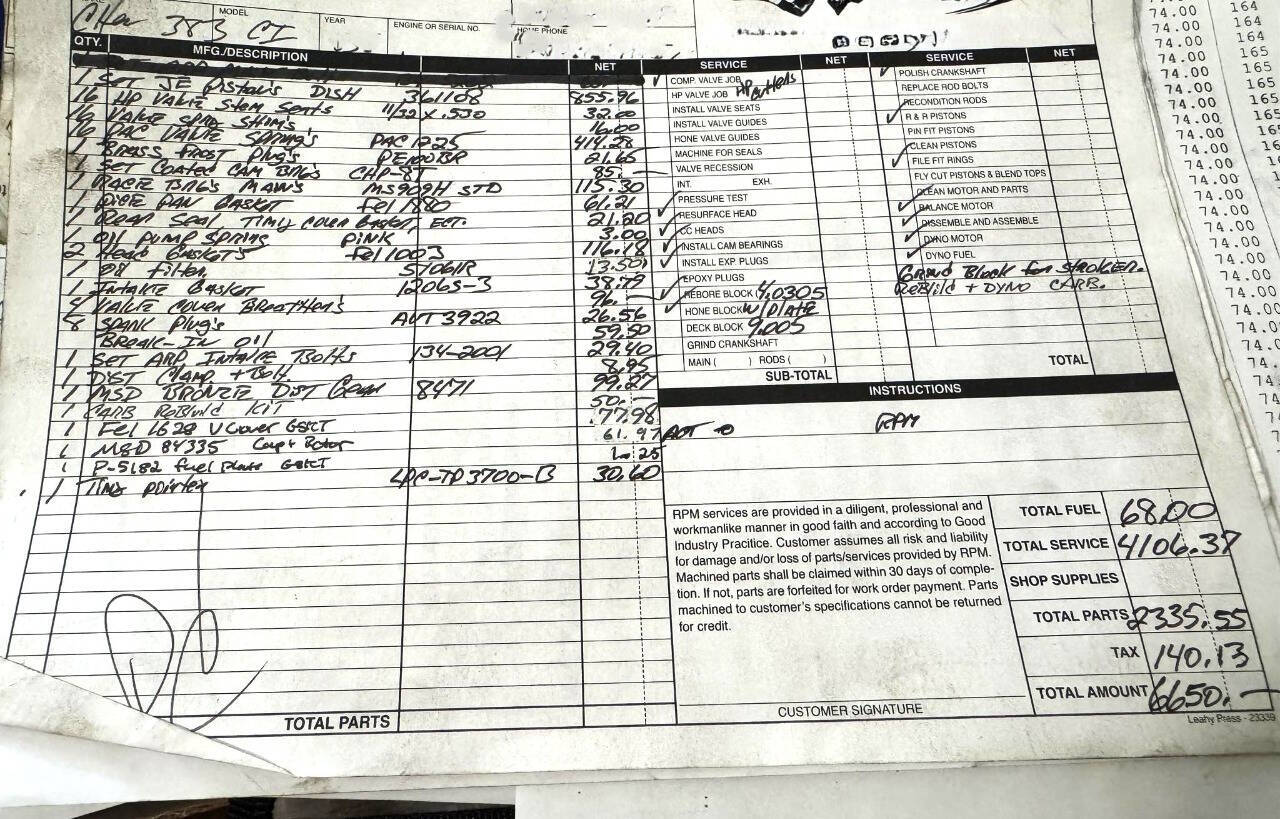 Chev 383 CI
MODEL
YEAR
ENGINE OR SERIAL NO.
HOME PHONE
QTY. MFG./DESCRIPTION NET
1 SET JE Pistons DISH 361108 855.96
16 HP Valve Stem Seals 11/32 x .530 32.00
16 Valve Spring Shims 16.00
16 PAC Valve Springs PAC 1225 414.28
1 Brass Frost Plugs PE100BR 21.65
1 SET Coated Cam Brgs CHP-8T 85.—
1 Race Brgs Mains MS909H STD 115.30
1 Pan Gasket Fel 1880 61.21
1 Rear Seal Timing Cover Gasket, ECT. 21.20
1 Oil Pump Spring Pink 3.00
2 Head Gaskets Fel 1003 116.18
1 Oil Filter 57061R 13.50
1 Intake Gasket 1206S-3 38.79
4 Valve Cover Breathers 96.—
8 Spark Plugs AUT 3922 26.56
Break-In Oil 59.50
1 SET ARP Intake Bolts 134-2001 29.40
1 Dist Clamp + Bolt 8.95
1 MSD Bronze Dist Gear 8471 99.27
1 Carb Rebuild Kit 50.—
1 Fel 1628 V Cover GSKT 77.98
1 MSD 84335 Cap + Rotor 61.97
1 P-5182 fuel plate GSKT
1 Timg pointer LPC-TP3700-B 30.60
TOTAL PARTS
SERVICE NET
COMP. VALVE JOB
HP VALVE JOB
INSTALL VALVE SEATS
INSTALL VALVE GUIDES
HONE VALVE GUIDES
MACHINE FOR SEALS
VALVE RECESSION
INT. EXH.
PRESSURE TEST
RESURFACE HEAD
CC HEADS
INSTALL CAM BEARINGS
INSTALL EXP. PLUGS
EPOXY PLUGS
REBORE BLOCK 4.0305
HONE BLOCK w/plate
DECK BLOCK 9.005
GRIND CRANKSHAFT
MAIN ( ) RODS ( )
SUB-TOTAL
SERVICE NET
POLISH CRANKSHAFT
REPLACE ROD BOLTS
RECONDITION RODS
R & R PISTONS
PIN FIT PISTONS
CLEAN PISTONS
FILE FIT RINGS
FLY CUT PISTONS & BLEND TOPS
CLEAN MOTOR AND PARTS
BALANCE MOTOR
DISSEMBLE AND ASSEMBLE
DYNO MOTOR
DYNO FUEL
Grind Block for Stroker.
ReBuild + DYNO CARB.
TOTAL
INSTRUCTIONS
RPM
RPM services are provided in a diligent, professional and
workmanlike manner in good faith and according to Good
Industry Pracitice. Customer assumes all risk and liability
for damage and/or loss of parts/services provided by RPM.
Machined parts shall be claimed within 30 days of comple-
tion. If not, parts are forfeited for work order payment. Parts
machined to customer's specifications cannot be returned
for credit.
CUSTOMER SIGNATURE
TOTAL FUEL 68.00
TOTAL SERVICE 4106.37
SHOP SUPPLIES
TOTAL PARTS 2335.55
TAX 140.13
TOTAL AMOUNT 6650.—
Leahy Press - 23339
74.00 164
74.00 164
74.00 165
74.00 165
74.00 165
74.00 165
74.00
74.00
74.00
74.00
74.00
74.00
74.00
74.00
74.00
74.00